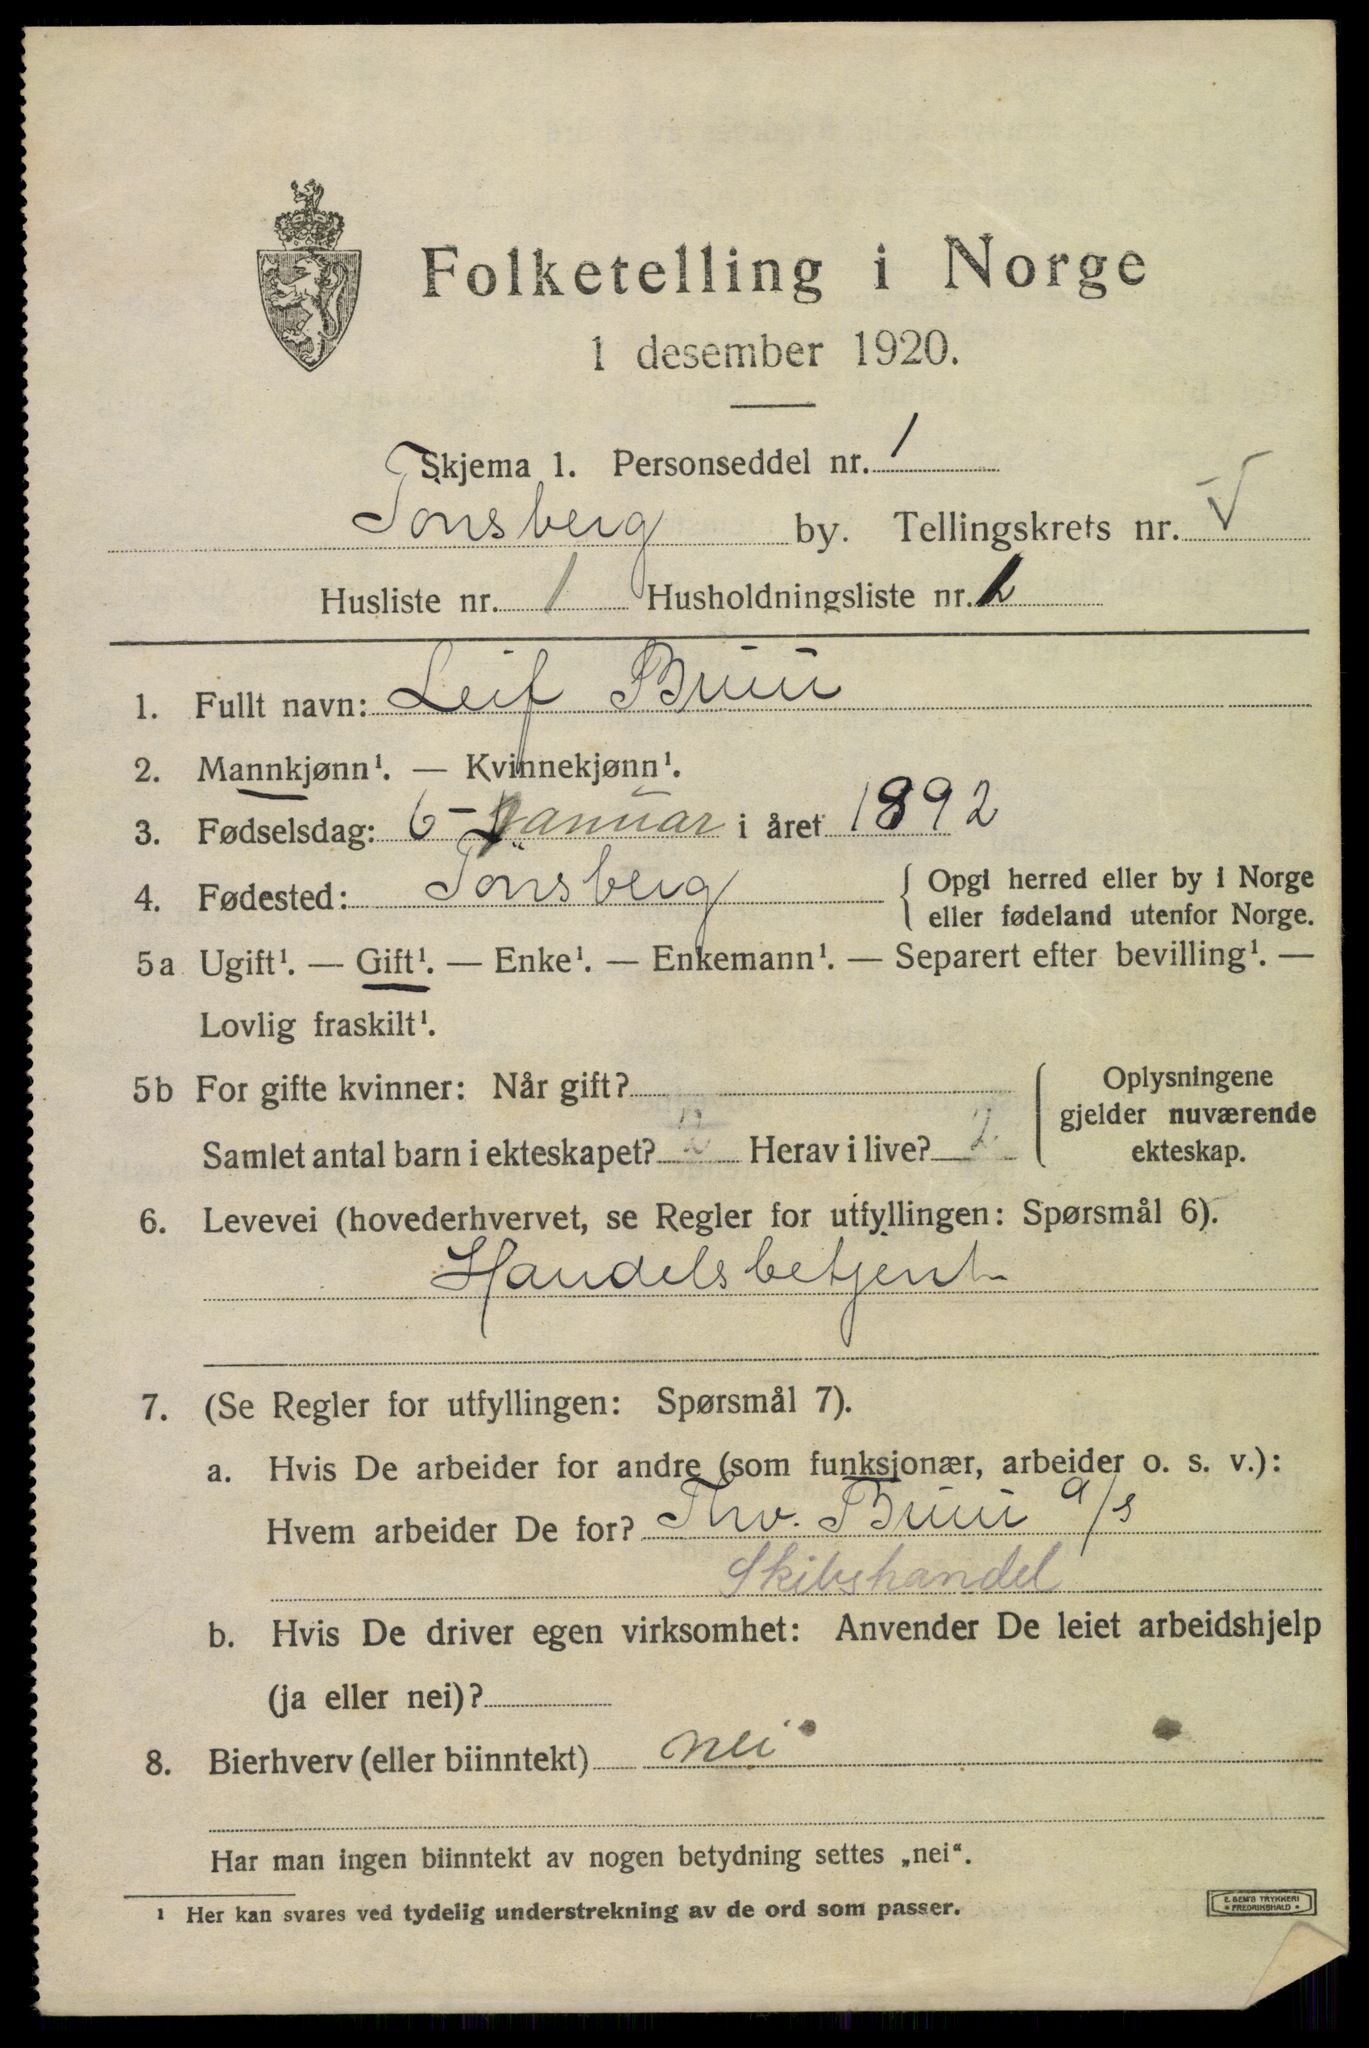 Folketelling i Norge
1 desember 1920.
Skjema 1. Personseddel nr. 1
Tønsberg by. Tellingskrets nr. V
Husliste nr. 1 Husholdningsliste nr.
1. Fullt navn: Leif Bruu
2. Mannkjønn¹. — Kvinnekjønn¹.
3. Fødselsdag: 6-Januar i året 1892
4. Fødested: Tönsberg { Opgi herred eller by i Norge
eller fødeland utenfor Norge.
5a Ugift¹. — Gift¹. — Enke¹. — Enkemann¹. — Separert efter bevilling¹. —
Lovlig fraskilt¹.
5b For gifte kvinner: Når gift? { Oplysningene
gjelder nuværende
Samlet antal barn i ekteskapet? 2 Herav i live? 2 ekteskap.
6. Levevei (hovederhvervet, se Regler for utfyllingen: Spørsmål 6).
Handelsbetjent
7. (Se Regler for utfyllingen: Spørsmål 7).
a. Hvis De arbeider for andre (som funksjonær, arbeider o. s. v.):
Hvem arbeider De for? Thv. Bruu a/s
Skibshandel
b. Hvis De driver egen virksomhet: Anvender De leiet arbeidshjelp
(ja eller nei)?
8. Bierhverv (eller biinntekt) nei
Har man ingen biinntekt av nogen betydning settes „nei“.
¹ Her kan svares ved tydelig understrekning av de ord som passer.
E. SEM'S TRYKKERI
* FREDRIKSHALD *